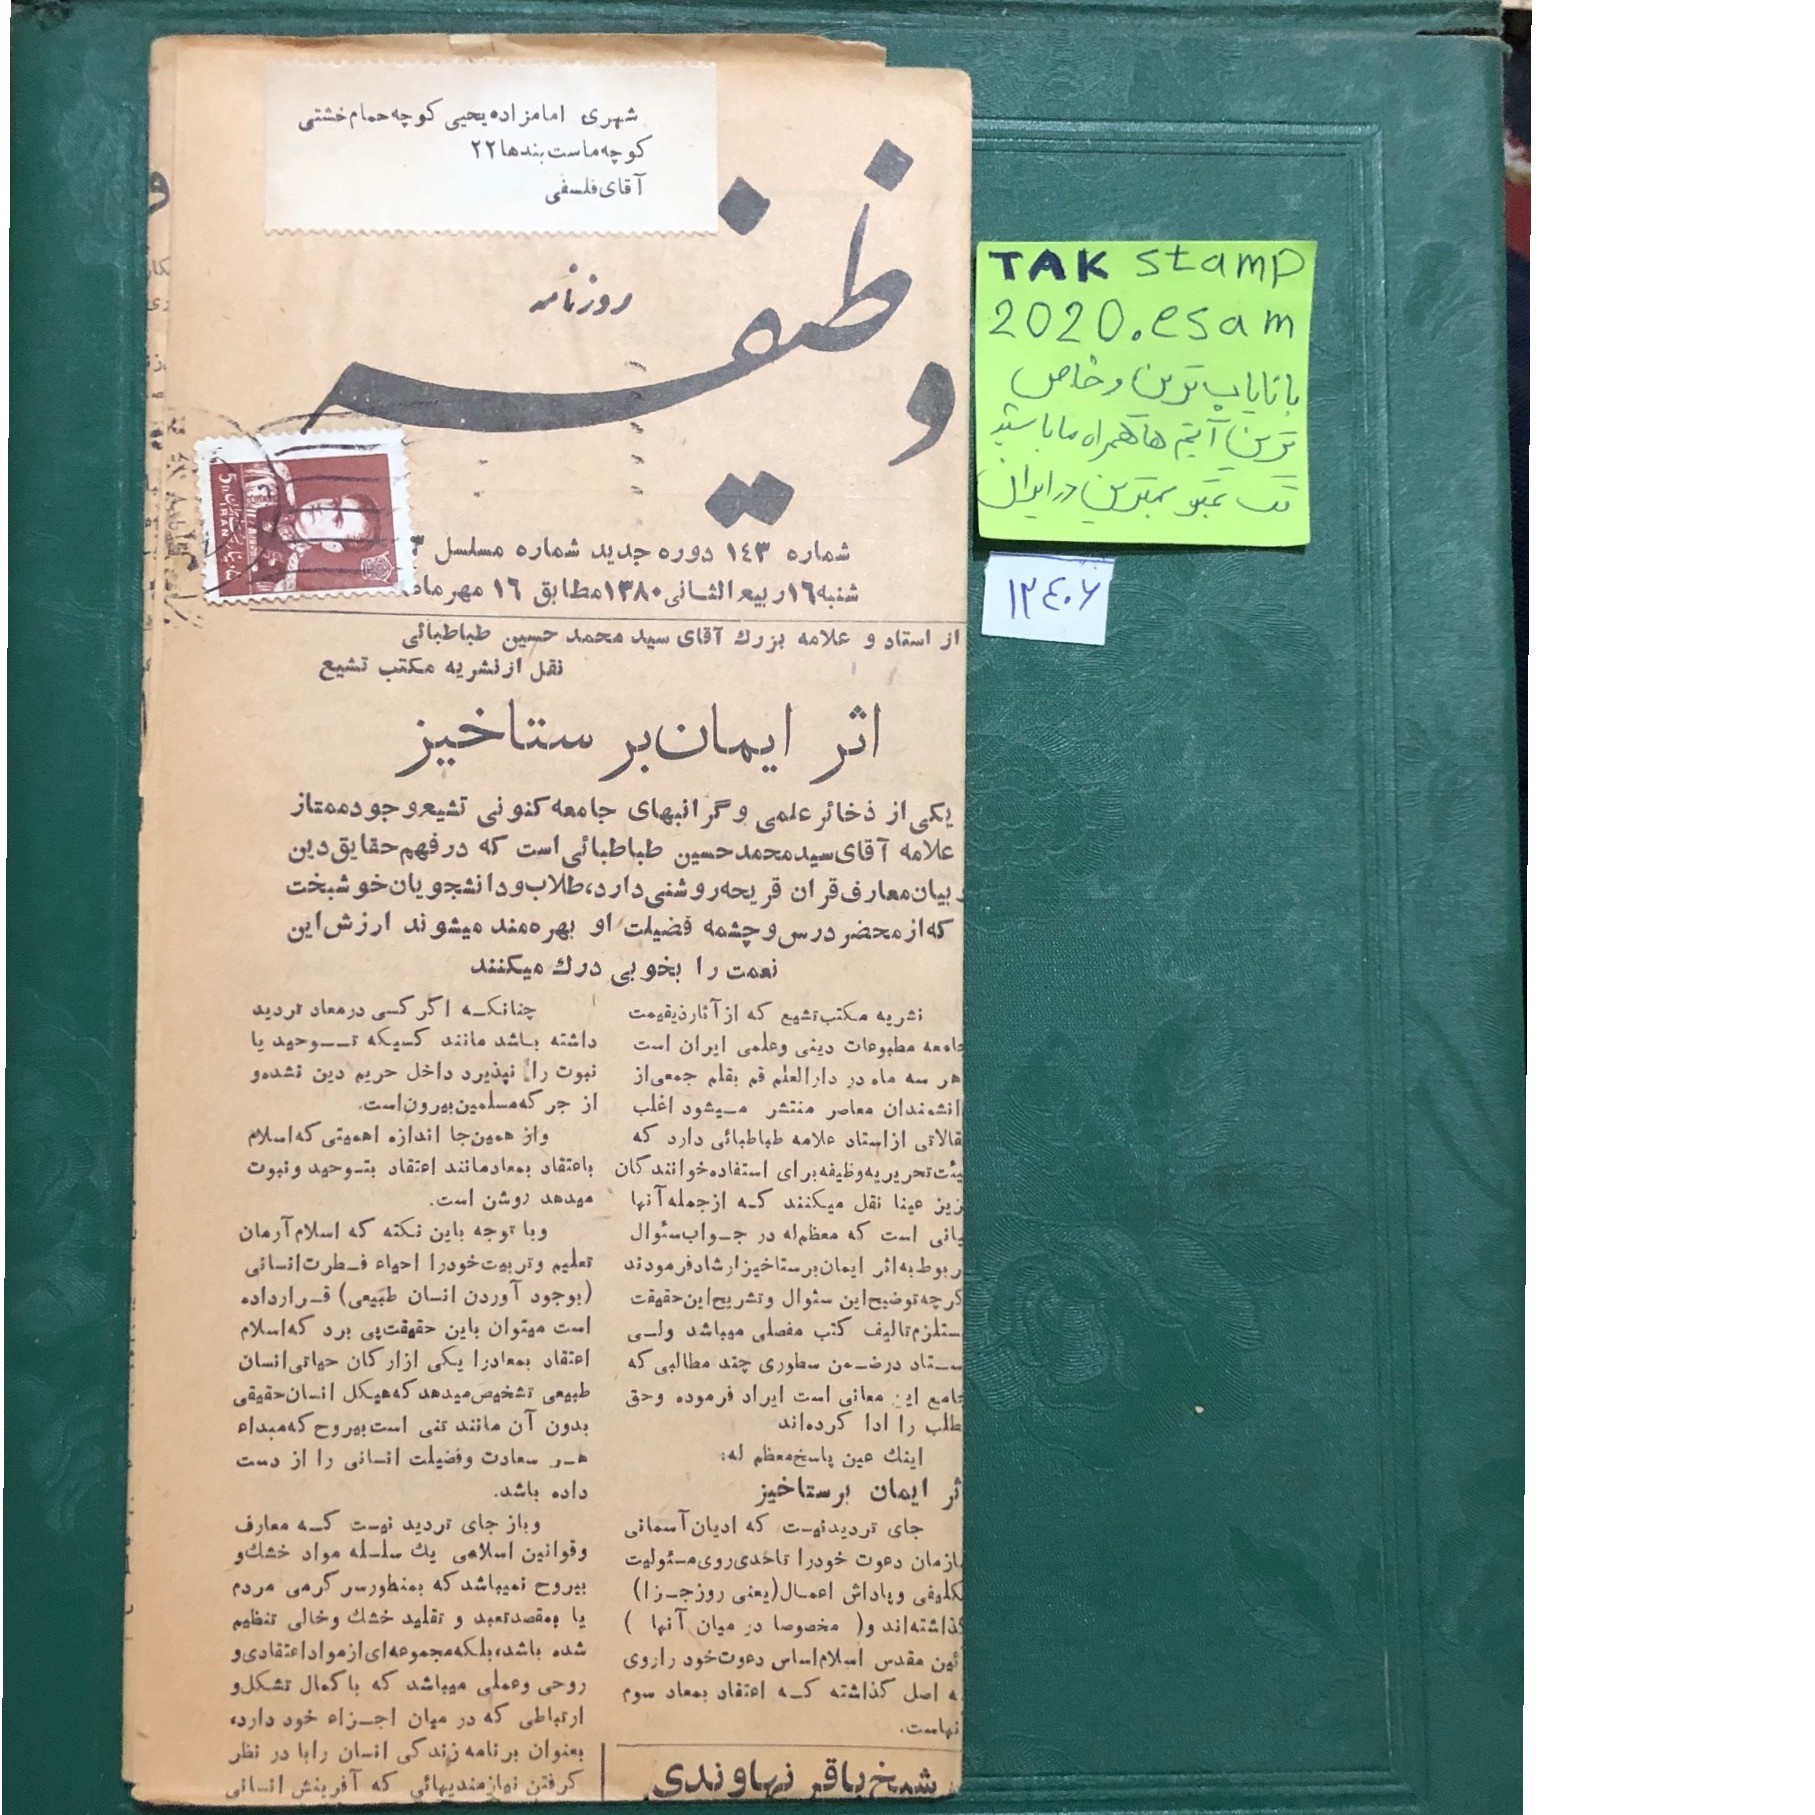 شهری امامزاده یحیی کوچه حمام خشتی
کوچه ماست بندها ۲۲
آقای فلسفی
روزنامه
وظیفه
شماره ۱۴۳ دوره جدید شماره مسلسل ۳
شنبه ۱۶ ربیع الثانی ۱۳۸۰ مطابق ۱۶ مهرماه
5D.
IRAN
TAK stamp
2020.esam
با نایاب ترین و خاص
ترین آیتم ها همراه ما باشید
تک تمبر بهترین در ایران
۱۲۴۰۶
از استاد و علامه بزرك آقای سید محمد حسین طباطبائی
نقل از نشریه مکتب تشیع
اثر ایمان برستاخیز
یکی از ذخائر علمی و گرانبهای جامعه کنونی تشیع وجود ممتاز
علامه آقای سید محمد حسین طباطبائی است که در فهم حقایق دین
و بیان معارف قران قریحه روشنی دارد، طلاب و دانشجویان خوشبخت
که از محضر درس و چشمه فضیلت او بهره مند میشوند ارزش این
نعمت را بخوبی درك میکنند
نشریه مکتب تشیع که از آثار ذیقیمت
جامعه مطبوعات دینی و علمی ایران است
هر سه ماه در دارالعلم قم بقلم جمعی از
انشمندان معاصر منتشر میشود اغلب
قالاتی از استاد علامه طباطبائی دارد که
یئت تحریریه وظیفه برای استفاده خوانندگان
زیز عینا نقل میکنند که از جمله آنها
یانی است که معظم له در جواب سئوال
ربوط به اثر ایمان برستاخیز ارشاد فرمودند
گرچه توضیح این سئوال و تشریح این حقیقت
ستلزم تالیف کتب مفصلی میباشد ولی
ستاد در ضمن سطوری چند مطالبی که
جامع این معانی است ایراد فرموده و حق
طلب را ادا کرده اند
اینك عین پاسخ معظم له:
ثر ایمان برستاخیز
جای تردید نیست که ادیان آسمانی
ازمان دعوت خودرا تاحدی روی مسئولیت
کلیفی و پاداش اعمال (یعنی روز جزا)
گذاشته اند و ( مخصوصا در میان آنها )
ئین مقدس اسلام اساس دعوت خود را روی
ه اصل گذاشته که اعتقاد بمعاد سوم
نهاست.
شیخ باقر نهاوندی
چنانکه اگر کسی در معاد تردید
داشته باشد مانند کسیکه توحید یا
نبوت را نپذیرد داخل حریم دین نشده و
از جرگه مسلمین بیرون است.
واز همین جا اندازه اهمیتی که اسلام
باعتقاد بمعاد مانند اعتقاد بتوحید و نبوت
میدهد روشن است.
وبا توجه باین نکته که اسلام آرمان
تعلیم و تربیت خودرا احیاء فطرت انسانی
(بوجود آوردن انسان طبیعی) قرار داده
است میتوان باین حقیقت پی برد که اسلام
اعتقاد بمعاد را یکی از ارکان حیاتی انسان
طبیعی تشخیص میدهد که هیکل انسان حقیقی
بدون آن مانند تنی است بیروح که مبداء
هر سعادت و فضیلت انسانی را از دست
داده باشد.
وباز جای تردید نیست که معارف
وقوانین اسلامی یك سلسله مواد خشك و
بیروح نمیباشد که بمنظور سرگرمی مردم
یا بمقصد تعبد و تقلید خشك و خالی تنظیم
شده باشد، بلکه مجموعه ای از مواد اعتقادی و
روحی وعملی میباشد که با کمال تشکل و
ارتباطی که در میان اجزاء خود دارد،
بعنوان برنامه زندگی انسان رابا در نظر
گرفتن نیازمندیهائی که آفرینش انسانی